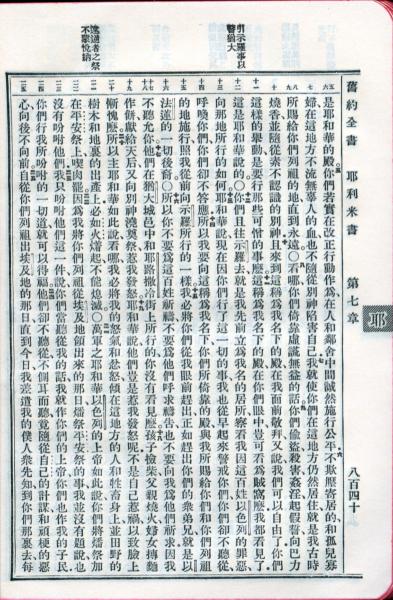 引示羅事以
警猶大
違逆者之祭
不蒙悅納
舊約全書　耶利米書　第七章　八百四十
耶
是耶和華的殿你們若實在改正行動作為在人和鄰舍中間誠然施行公平不欺壓寄居的和孤兒寡
婦在這地方不流無辜人的血也不隨從別神陷害自己我就使你們在這地方仍然居住就是我古時
所賜給你們列祖的地直到永遠〇看哪你們倚靠虛謊無益的話你們偷盜殺害姦淫起假誓向巴力
燒香並隨從素不認識的別神且來到這稱為我名下的殿在我面前敬拜又說我們可以自由了你們
這樣的舉動是要行那些可憎的事麼這稱為我名下的殿在你們眼中豈可看為賊窩麼我都看見了
這是耶和華說的〇你們且往示羅去就是我先前立為我名的居所察看我因這百姓以色列的罪惡
向那地所行的如何耶和華說現在因你們行了這一切的事我也從早起來警戒你們你們卻不聽從
呼喚你們你們卻不答應所以我要向這稱為我名下你們所倚靠的殿與我所賜給你們和你們列祖
的地施行照我從前向示羅所行的一樣我必將你們從我眼前趕出正如趕出你們的眾弟兄就是以
法蓮的一切後裔〇所以你不要為這百姓祈禱不要為他們呼求禱告也不要向我為他們祈求因我
不聽允你他們在猶大城邑中和耶路撒冷街上所行的你沒有看見麼孩子檢柴父親燒火婦女摶麵
作餅獻給天后又向別神澆奠祭惹我發怒耶和華說他們豈是惹我發怒呢不是自己惹禍以致臉上
慚愧麼所以主耶和華如此說看哪我必將我的怒氣和忿怒傾在這地方的人和牲畜身上並田野的
樹木和地裏的出產上必如火燒起不能熄滅〇萬軍之耶和華以色列的上帝如此說你們將燔祭加
在平安祭上喫肉罷因為我將你們列祖從埃及地領出來的那日燔祭平安祭的事我並沒有題說也
沒有吩咐他們我只吩咐他們這一件說你們當聽從我的話我就作你們的上帝你們也作我的子民
你們行我所吩咐的一切道就可以得福他們卻不聽從不側耳而聽竟隨從自己的計謀和頑梗的惡
心向後不向前自從你們列祖出埃及地的那日直到今日我差遣我的僕人眾先知到你們那裏去每